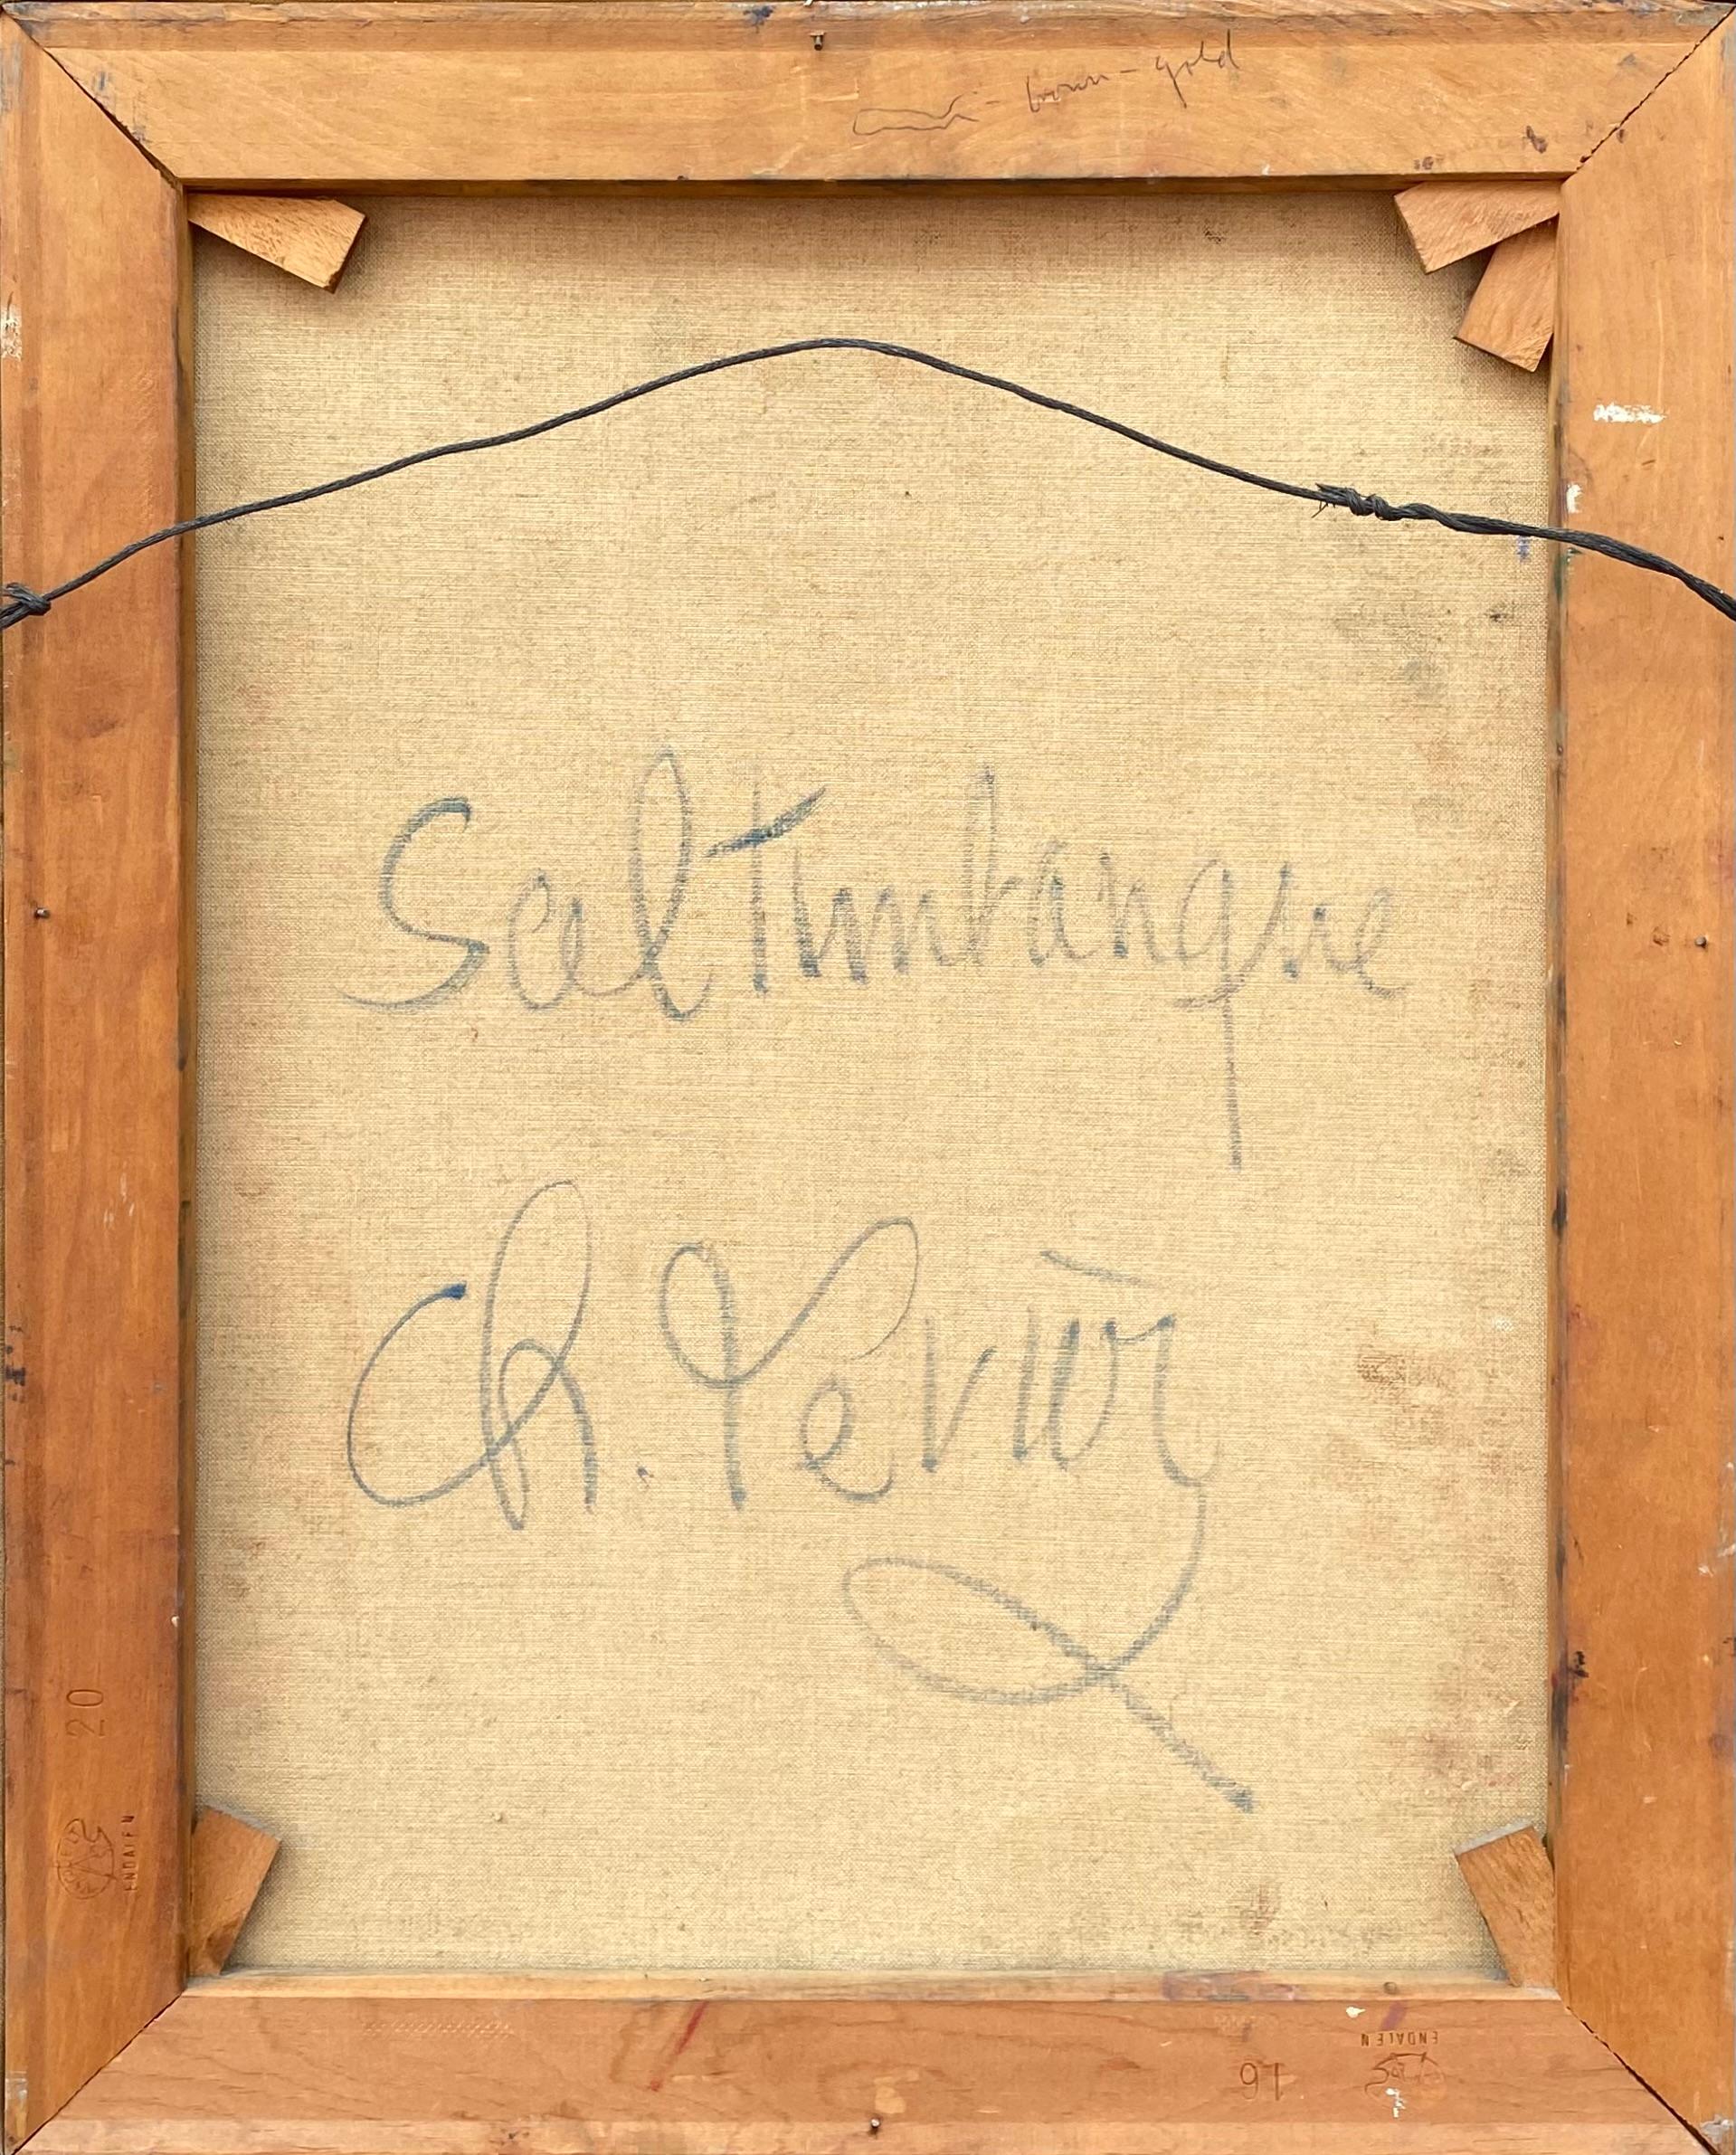 brown - gold
Saltimbanque
Ch. Levier
20
ENDALEN
ENDALEN
16